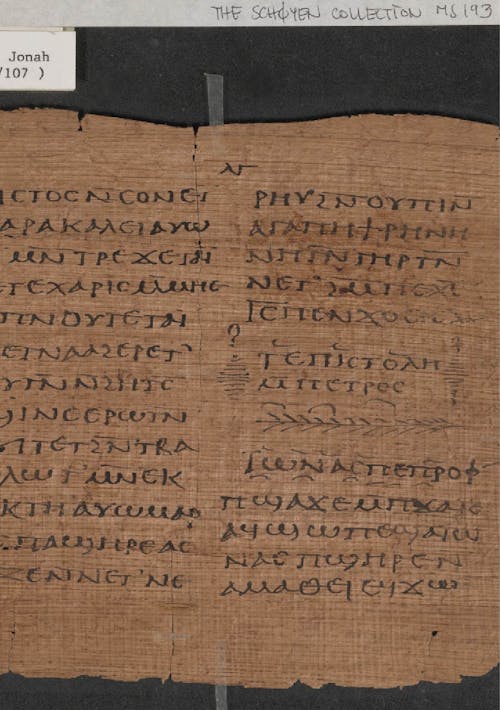 THE SCHØYEN COLLECTION MS 193
Jonah
/107 )
ⲓⲥⲧⲟⲥⲛⲥⲟⲛⲉⲧ
ⲁⲣⲁⲕⲁⲗⲉⲓⲁⲩⲱ
ⲙⲛ̄ⲧⲣⲉϫⲉⲧⲁⲓ
ⲧⲉⲭⲁⲣⲓⲥⲙ̄ⲙⲏⲉ
ⲡⲛⲟⲩⲧⲉⲧⲁⲓ
ⲉⲧⲛⲁⲁϩⲉⲣⲉⲧ
ⲩⲧⲛ̄ⲛϩⲏⲧⲥ
ϣⲓⲛⲉⲉⲣⲱⲧⲛ
ⲧⲉⲧϩⲛ̄ⲧⲃⲁ
ⲗⲱⲛⲙⲛ̄ⲉⲕ
ⲕⲧⲏⲁⲩⲱⲙⲁⲣ
ⲥⲡⲁϣⲏⲣⲉⲁⲥ
ⲍⲉⲛⲛⲉⲧⲛⲉ
ⲣⲏⲩϩⲛ̄ⲟⲩⲡⲓⲛ
ⲁⲅⲁⲡⲏϯⲣⲏⲛⲏ
ⲛⲏⲧⲛ̄ⲧⲏⲣⲧⲛ̄
ⲛⲉⲧϩⲙ̄ⲡⲉⲭⲥ̄
ⲓⲥ̄ⲡⲉⲛϫⲟⲉⲓⲥ
ⲧⲉⲡⲓⲥⲧⲟⲗⲏ
ⲙⲡⲉⲧⲣⲟⲥ
ⲓⲱⲛⲁⲥⲡⲉⲡⲣⲟⲫ
ⲡϣⲁϫⲉⲙ̄ⲡϫⲁⲉⲓⲥ
ⲁϥϣⲱⲡⲉϣⲁⲓⲱ
ⲛⲁⲥⲡϣⲏⲣⲉⲛ
ⲁⲙⲁⲑⲉⲓⲉϥϫⲱ